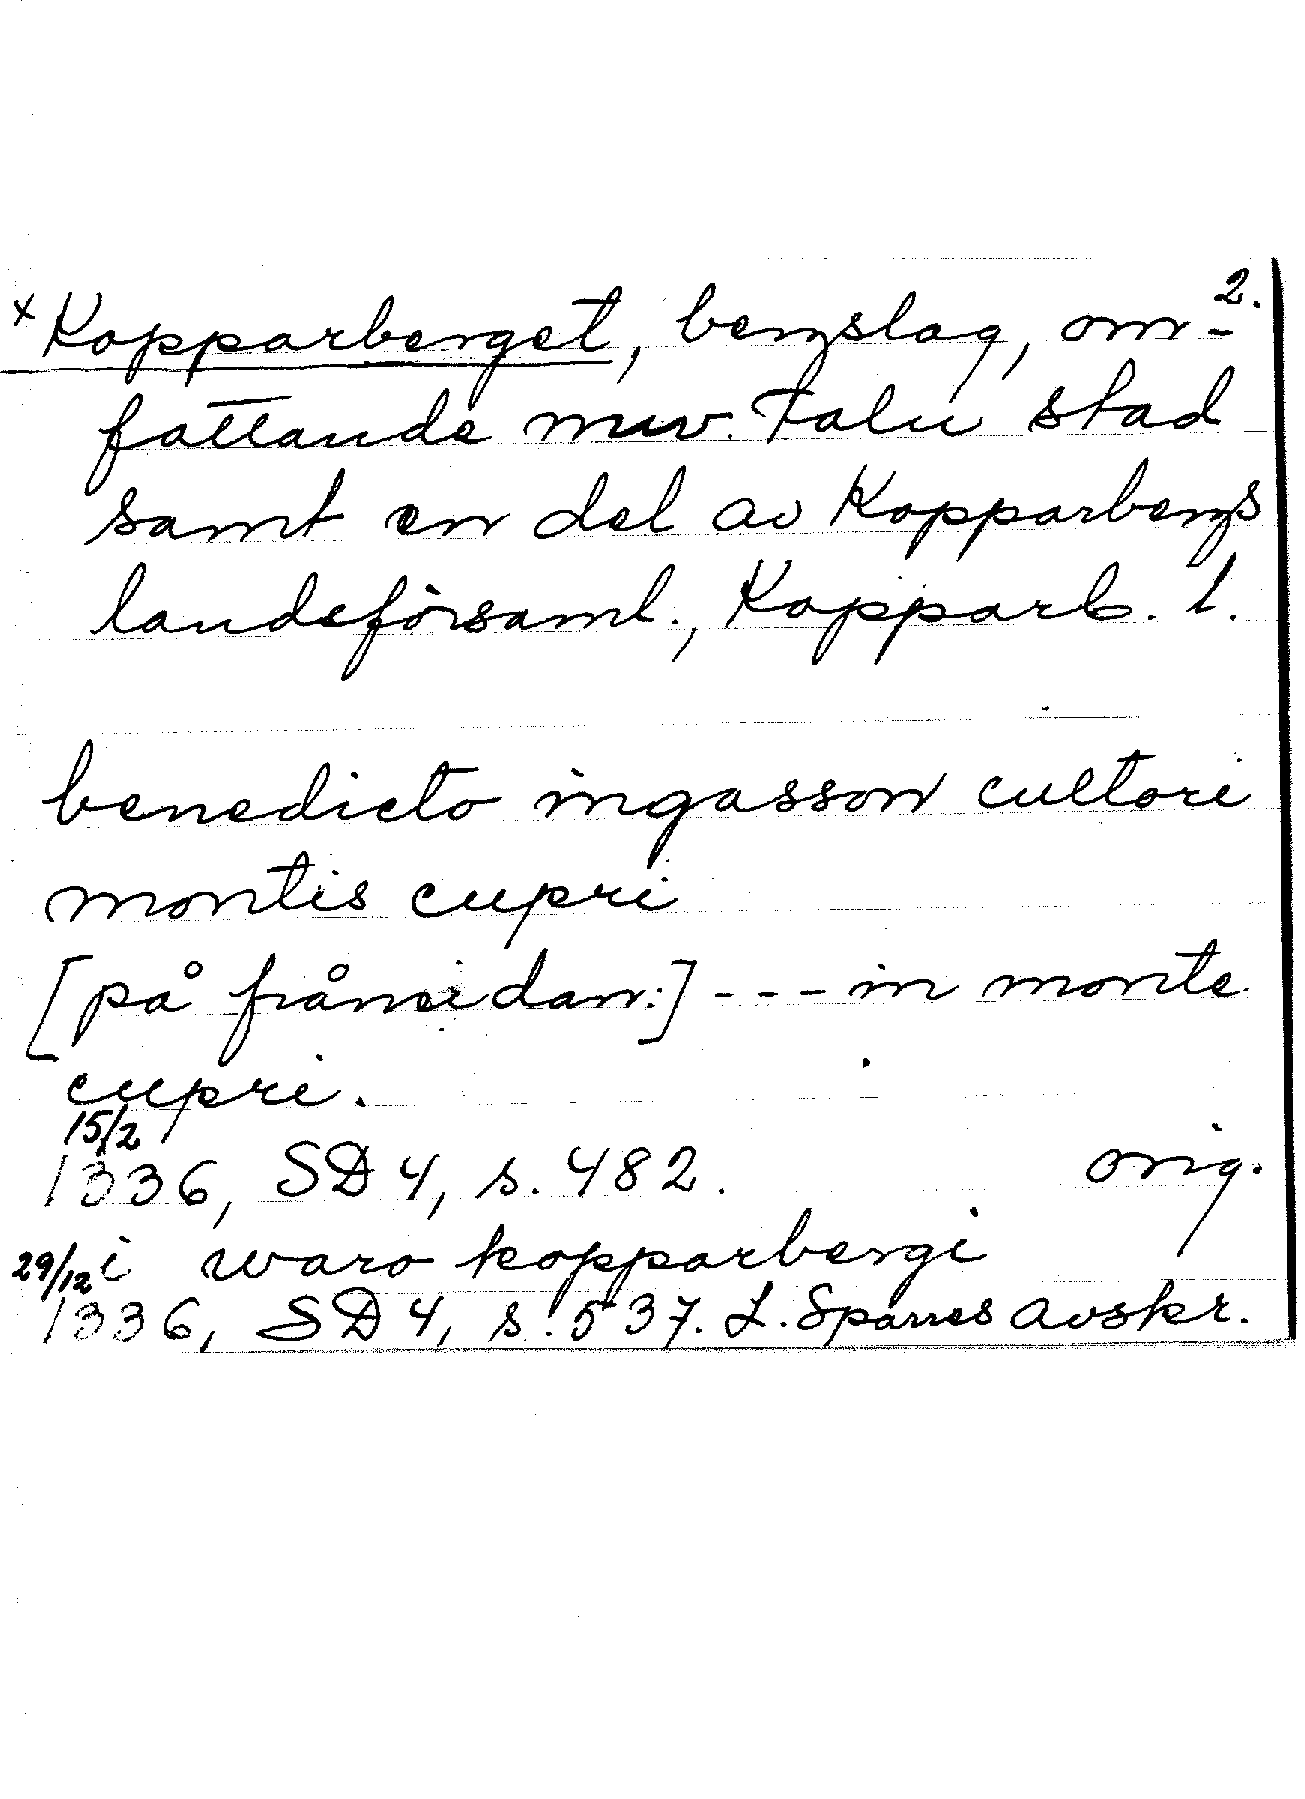 2.
x Kopparberget, bergslag, om-
fattande nuv. Falu stad
samt en del av Kopparbergs
landsförsaml., Kopparb. l.
benedicto ingasson cultori
montis cupri
[på frånsidan:] --- in monte
cupri.
15/2
1336, SD 4, s. 482. orig.
29/12 i waro kopparbergi
1336, SD 4, s. 537. L. Sparres avskr.